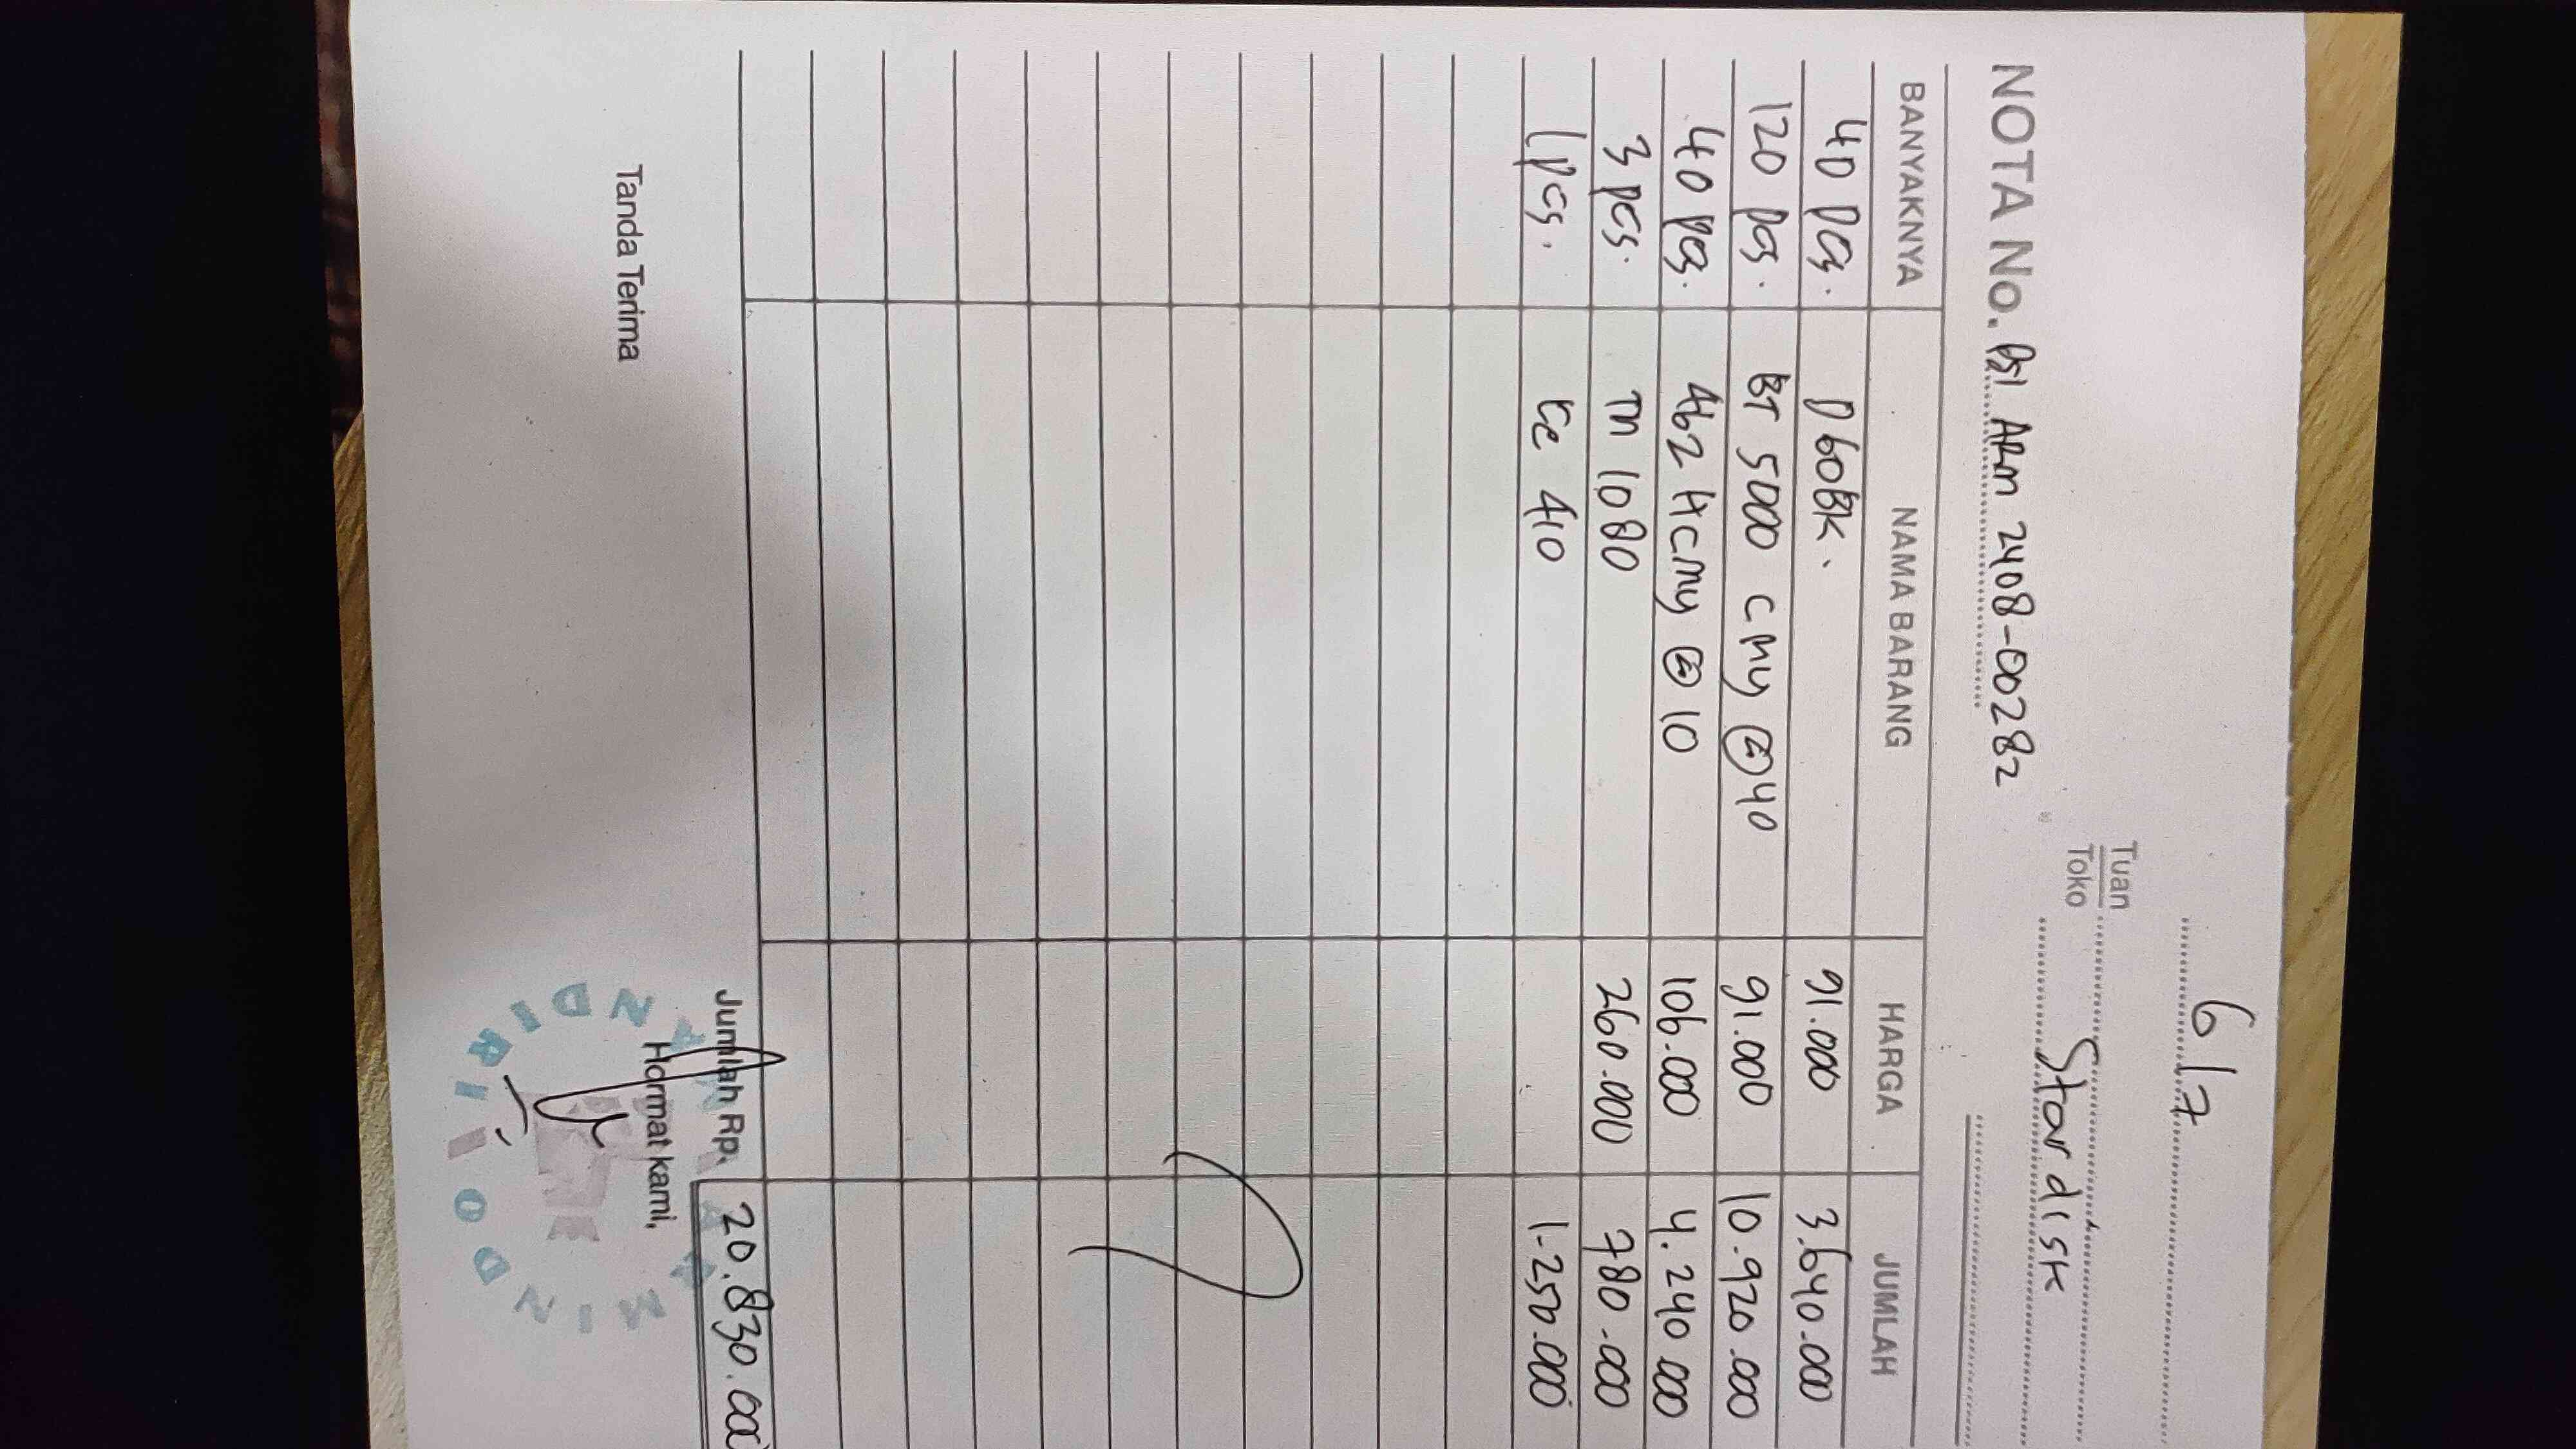 6/7
Tuan
Toko
Stardisk
NOTA No. PSI ARM 2408-00282
BANYAKNYA NAMA BARANG HARGA JUMLAH
40 pcs. D60BK. 91.000 3.640.000
120 pcs. BT 5000 CMY @ 40 91.000 10.920.000
40 pcs. 462 4cmy @ 10 106.000 4.240.000
3 pcs. TN 1080 260.000 780.000
1 pcs. CE 410 1.250.000
Jumlah Rp. 20.830.00
Tanda Terima Hormat kami,